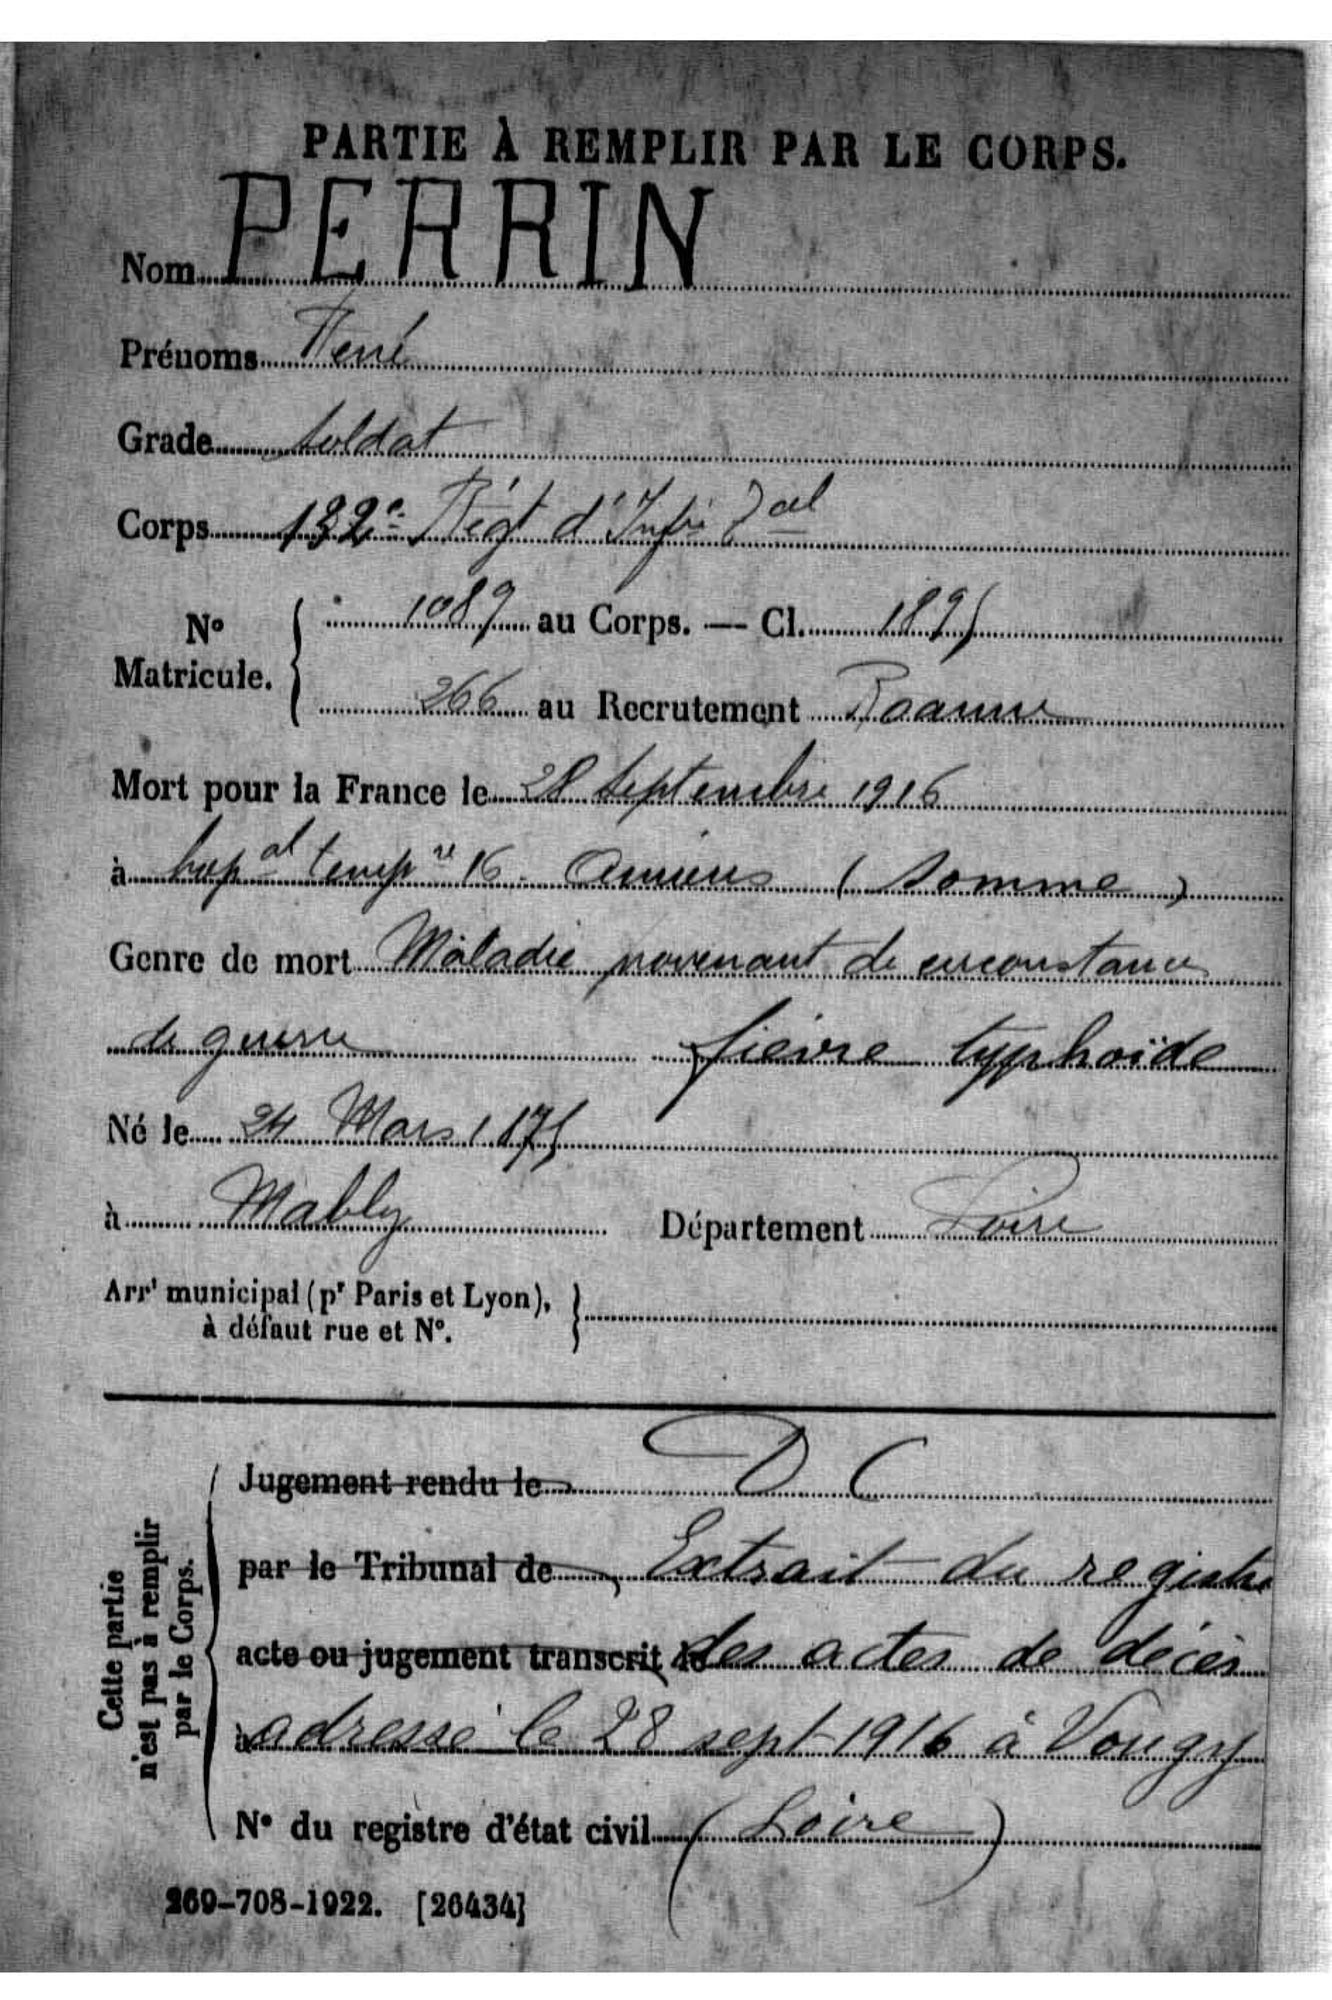 PARTIE À REMPLIR PAR LE CORPS.
Nom PERRIN
Prénoms René
Grade Soldat
Corps 132e Régt d'Infie Tal
No Matricule. { 1089 au Corps. — Cl. 1895
266 au Recrutement Roanne
Mort pour la France le 28 Septembre 1916
à hopal tempre 16 Amiens (Somme)
Genre de mort Maladie provenant de circonstances
de guerre fièvre typhoïde
Né le 24 Mars 1875
à Mably Département Loire
Arrt municipal (pr Paris et Lyon),
à défaut rue et No. }
Cette partie
n'est pas à remplir
par le Corps.
Jugement rendu le D C
par le Tribunal de Extrait du registre
acte ou jugement transcrit le des actes de décès
à adressé le 28 sept 1916 à Vougy
No du registre d'état civil (Loire)
269-708-1922. [26434]